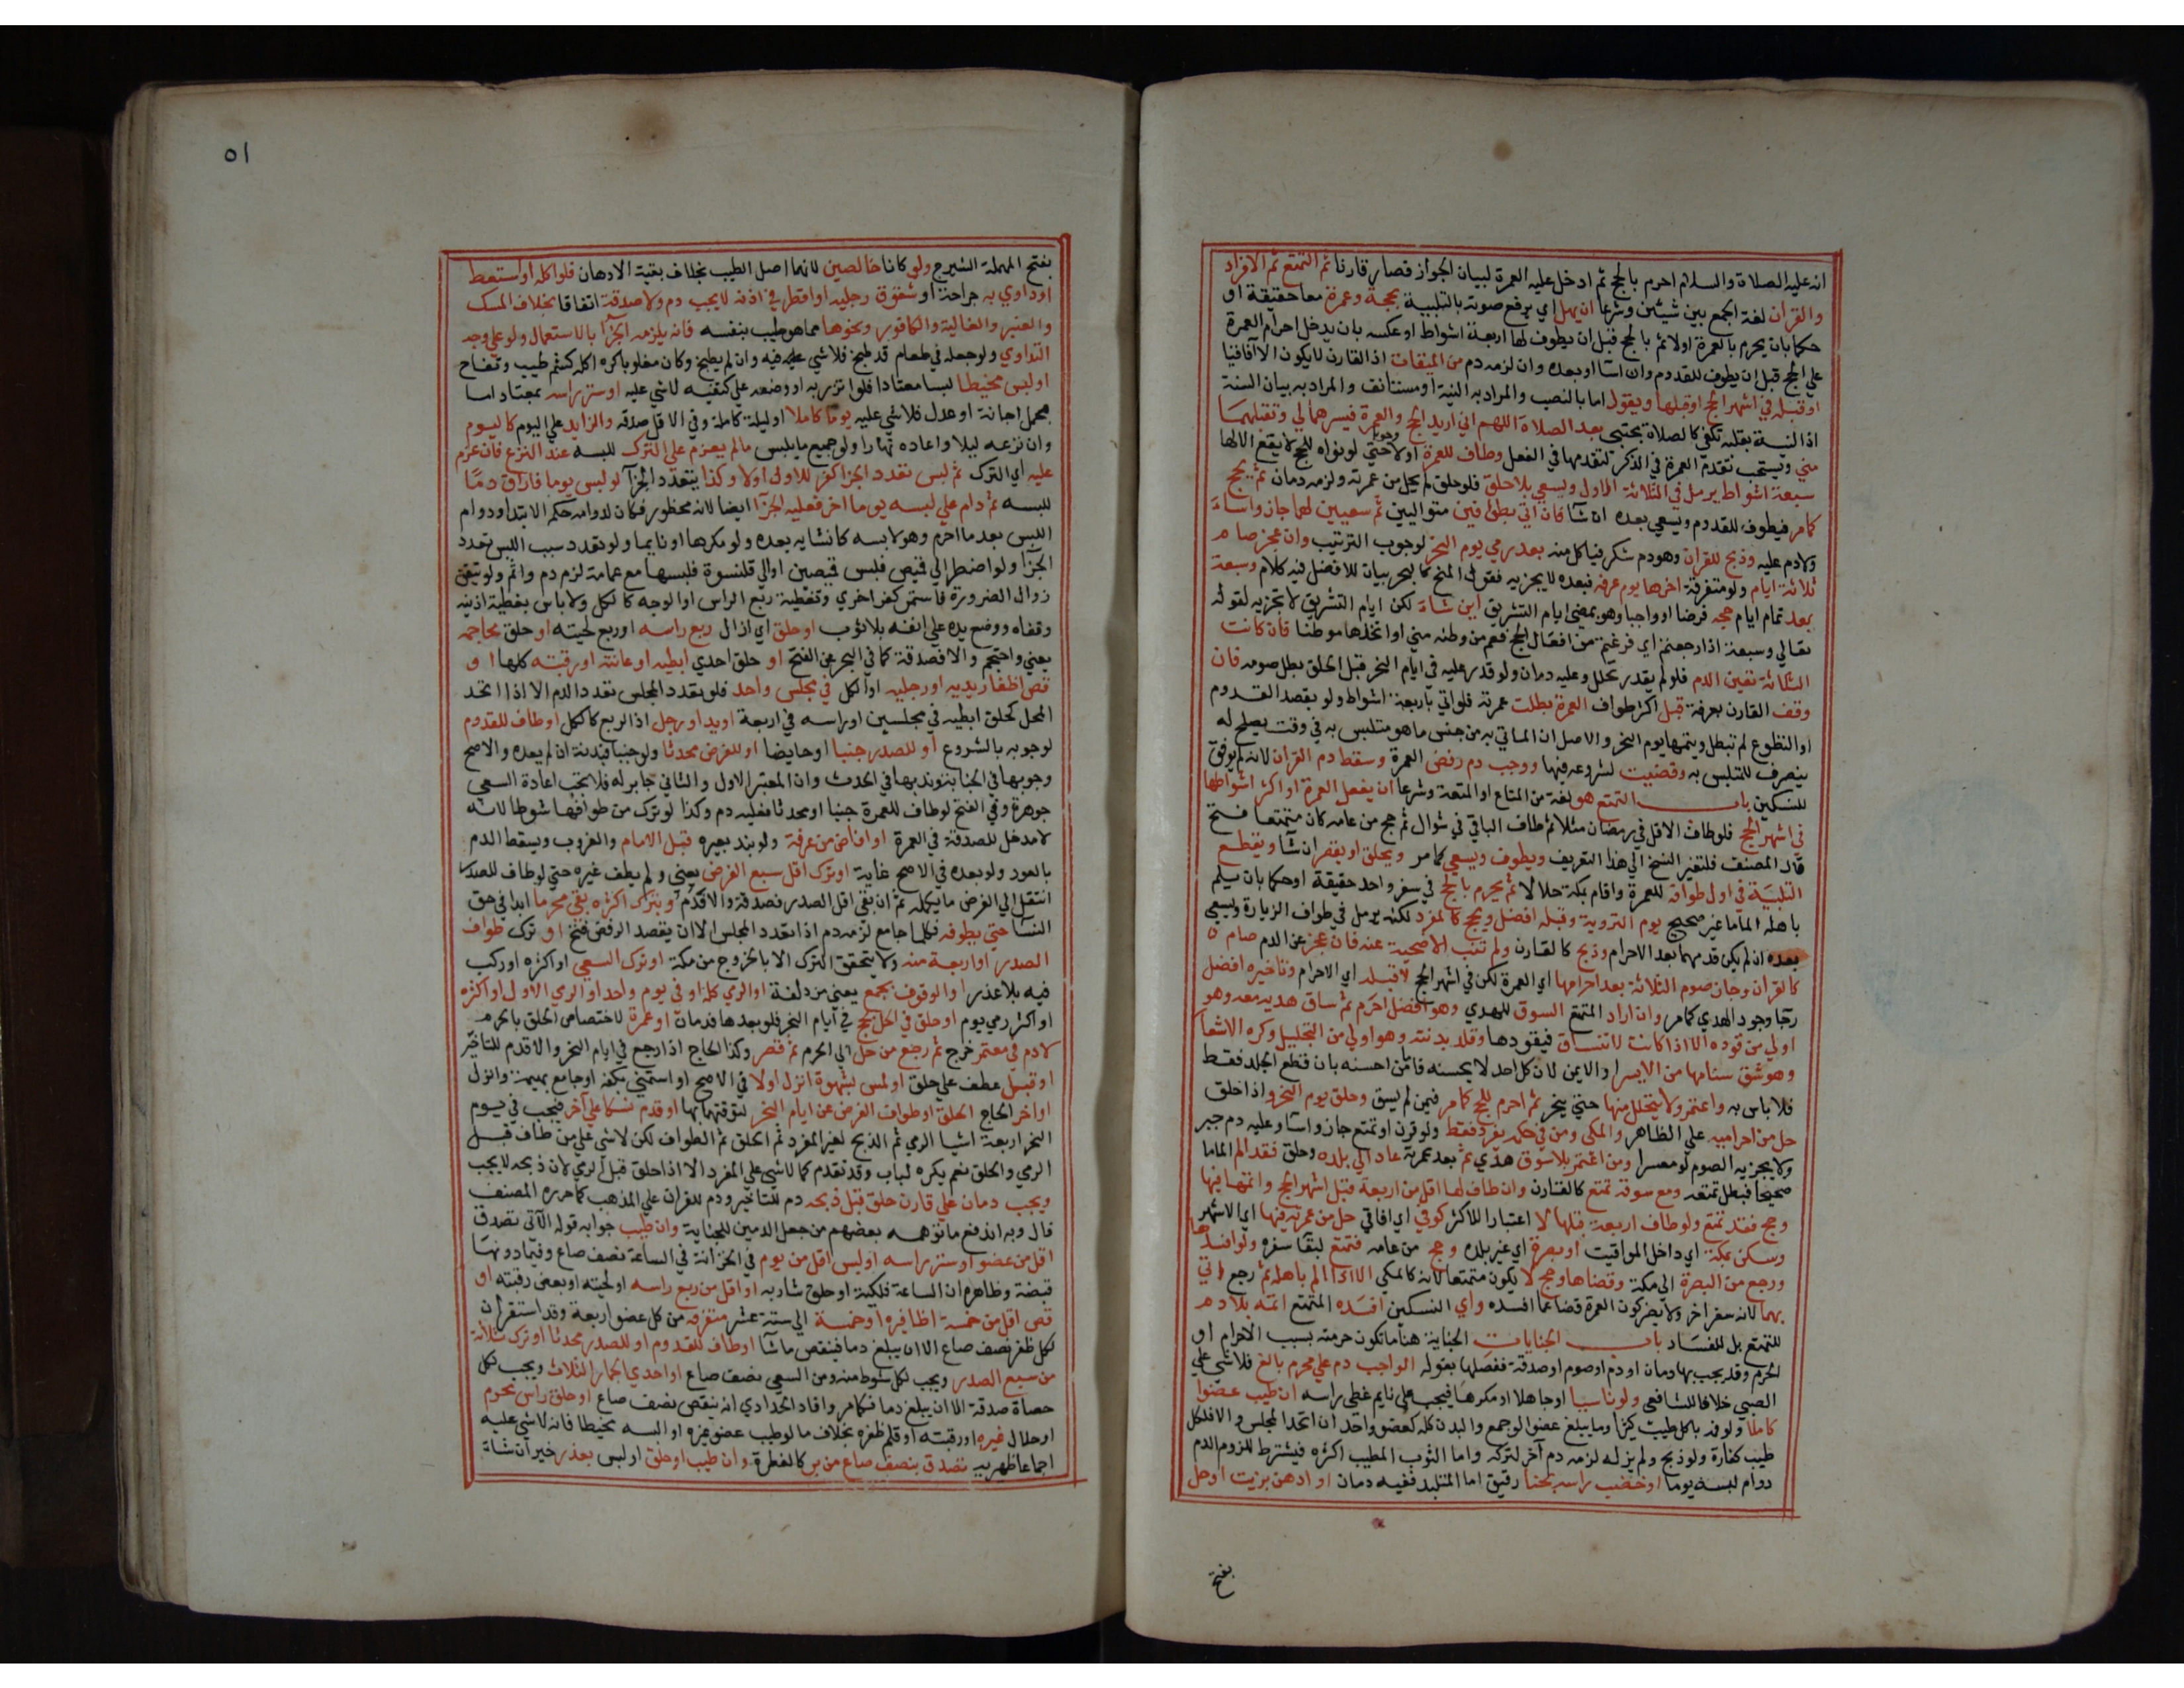 انه عليه الصلاة والسلام احرم بالحج ثم ادخل عليه العمرة لبيان الجواز فصار قارنا ثم التمتع ثم الافراد
والقران لغة الجمع بين شيئين وشرعا ان يهل اي يرفع صوته بالتلبية بحجة وعمرة معا حقيقة او
حكما بان يحرم بالعمرة اولا ثم بالحج قبل ان يطوف لها اربعة اشواط او عكسه بان يدخل احرام العمرة
علي الحج قبل ان يطوف للقدوم وان اسا او بعده وان لزمه دم من الميقات اذ القارن لا يكون الا آفاقيا
او قبله في اشهر الحج او قبلها ويقول اما بالنصب والمراد به النية او مستانف والمراد به بيان السنة
اذ النية بقلبه تكفي كالصلاة مجتبي بعد الصلاة اللهم اني اريد الحج والعمرة فيسرهما لي وتقبلهما
مني ويستحب تقدم العمرة في الذكر لتقدمها في الفعل وطاف للعمرة اولا وجوبا حتي لو نواه للحج لا يقع الا لها
سبعة اشواط يرمل في الثلاثة الاول ويسعي بلا حلق فلو حلق لم يحل من عمرته ولزمه دمان ثم يحج
كما مر فيطوف للقدوم ويسعي بعده ان شآ فان اتي بطوافين متواليين ثم سعيين لهما جاز واساء
ولا دم عليه وذبح للقران وهو دم شكر فياكل منه بعد رمي يوم النحر لوجوب الترتيب وان عجز صام
ثلاثة ايام ولو متفرقة اخرها يوم عرفة فبعده لا يجزيه فقول المنح كالبحر بيان للافضل فيه كلام وسبعة
بعد تمام ايام حجه فرضا او واجبا وهو بمضي ايام التشريق اين شاء لكن ايام التشريق لا تجزيه لقوله
تعالي وسبعة اذا رجعتم اي فرغتم من افعال الحج فعم من وطنه مني او اتخذها موطنا فان فاتت
الثلاثة تعين الدم فلو لم يقدر تحلل وعليه دمان ولو قدر عليه في ايام النحر قبل الحلق بطل صومه فان
وقف القارن بعرفة قبل اكثر طواف العمرة بطلت عمرته فلو اتي باربعة اشواط ولو بقصد القدوم
او التطوع لم تبطل ويتمها يوم النحر والاصل ان الماتي به من جنس ما هو متلبس به في وقت يصلح له
ينصرف للمتلبس به وقضيت لشروعه فيها ووجب دم رفض العمرة وسقط دم القران لانه لم يوفق
للنسكين باب التمتع هو لغة من المتاع او المتعة وشرعا ان يفعل العمرة او اكثر اشواطها
في اشهر الحج فلو طاف الاقل في رمضان مثلا ثم طاف الباقي في شوال ثم حج من عامه كان متمتعا فتح
قال المصنف فلتغير النسخ الي هذا التعريف ويطوف ويسعي كما مر ويحلق او يقصر ان شآ ويقطع
التلبية في اول طوافه للعمرة واقام بمكة حلالا ثم يحرم بالحج في سفر واحد حقيقة او حكما بان يلم
باهله الماما غير صحيح يوم التروية وقبله افضل ويحج كالمفرد لكنه يرمل في طواف الزيارة ويسعي
بعده ان لم يكن قدمهما بعد الاحرام وذبح كالقارن ولم تنب الاضحية عنه فان عجز عن الدم صام
كالقران وجاز صوم الثلاثة بعد احرامها اي العمرة لكن في اشهر الحج لا قبله اي الاحرام وتاخيره افضل
رجآ وجود الهدي كما مر وان اراد المتمتع السوق للهدي وهو افضل احرم ثم ساق هديه معه وهو
اولي من قوده الا اذا كانت لا تنساق فيقودها وقلد بدنته وهو اولي من التجليل وكره الاشعار
وهو شق سنامها من الايسر او الايمن لان كل احد لا يحسنه فاما من احسنه بان قطع الجلد فقط
فلا باس به واعتمر ولا يتحلل منها حتي ينحر ثم احرم للحج كما مر فيمن لم يسق وحلق يوم النحر واذا حلق
حل من احراميه علي الظاهر والمكي ومن في حكمه يفرد فقط ولو قرن او تمتع جاز واسآ وعليه دم جبر
ولا يجزيه الصوم لو معسرا ومن اعتمر بلا سوق هدي ثم بعد عمرته عاد الي بلده وحلق فقد الم الماما
صحيحا فبطل تمتعه ومع سوقه تمتع كالقارن وان طاف لها اقل من اربعة قبل اشهر الحج واتمها فيها
وحج فقد تمتع ولو طاف اربعة قبلها لا اعتبارا للاكثر كوفي اي افاقي حل من عمرته فيها اي الاشهر
وسكن بمكة اي داخل المواقيت او بصرة اي غير بلده وحج من عامه فتمتع لبقا سفره ولو افسدها
ورجع من البصرة الي مكة وقضاها وحج لا يكون متمتعا لانه كالمكي الا اذا الم باهله ثم رجع واتي
بهما لانه سفر اخر ولا يضر كون العمرة قضا عما افسده واي النسكين افسده المتمتع اتمه بلا دم
للتمتع بل للفساد باب الجنايات الجناية هنا ما تكون حرمته بسبب الاحرام او
الحرم وقد يجب بها دمان او دم او صوم او صدقة ففصلها بقوله الواجب دم علي محرم بالغ فلا شي علي
الصبي خلافا للشافعي ولو ناسيا او جاهلا او مكرها فيجب علي نايم غطي راسه ان طيب عضوا
كاملا ولو فمه باكل طيب كثير او ما يبلغ عضوا لو جمع والبدن كله كعضو واحد ان اتحد المجلس والا فلكل
طيب كفارة ولو ذبح ولم يزله لزمه دم آخر لتركه واما الثوب المطيب اكثره فيشترط للزوم الدم
دوام لبسه يوما او خضب راسه بحنا رقيق اما المتلبد ففيه دمان او ادهن بزيت او حل
بفتح
٥١
بفتح المهملة الشيرج ولو كانا خالصين لانهما اصل الطيب بخلاف بقية الادهان فلو اكله او استعط
او داوي به جراحة او شقوق رجليه او اقطر في اذنه لا يجب دم ولا صدقة اتفاقا بخلاف المسك
والعنبر والغالية والكافور ونحوها مما هو طيب بنفسه فانه يلزمه الجزآ بالاستعمال ولو علي وجه
التداوي ولو جعله في طعام قد طبخ فلا شي عليه فيه وان لم يطبخ وكان مغلوبا كره اكله كشم طيب وتفاح
او لبس مخيطا لبسا معتادا فلو اتزر به او وضعه علي كتفيه لا شي عليه او ستر راسه بمعتاد اما
بحمل اجانة او عدل فلا شي عليه يوما كاملا او ليلة كاملة وفي الاقل صدقه والزايد علي اليوم كاليوم
وان نزعه ليلا واعاده نهارا ولو جميع ما يلبس مالم يعزم علي الترك للبسه عند النزع فان عزم
عليه اي الترك ثم لبس تعدد الجزا كفر للاول اولا وكذا يتعدد الجزآ لو لبس يوما فاراق دما
للبسه ثم دام علي لبسه يوما اخر فعليه الجزآ ايضا لانه محظور فكان لدوامه حكم الابتدا ودوام
اللبس بعد ما احرم وهو لابسه كانشايه بعده ولو مكرها او نايما ولو تعدد سبب اللبس تعدد
الجزآ ولو اضطر الي قميص فلبس قميصين او الي قلنسوة فلبسها مع عمامة لزم دم واثم ولو تيقن
زوال الضرورة فاستمر كفر اخري وتغطية ربع الراس او الوجه كالكل ولا باس بتغطية اذنيه
وقفاه ووضع يده علي انفه بلا ثوب او حلق اي ازال ربع راسه او ربع لحيته او حلق محاجمه
يعني واحتجم والا فصدقة كما في البحر عن الفتح او حلق احدي ابطيه او عانته او رقبته كلها او
قص اظفار يديه او رجليه او الكل في مجلس واحد فلو تعدد المجلس تعدد الدم الا اذا اتحد
المحل كحلق ابطيه في مجلسين او راسه في اربعة او يد او رجل اذ الربع كالكل او طاف للقدوم
لوجوبه بالشروع او للصدر جنبا او حايضا او للفرض محدثا ولو جنبا فبدنة ان لم يعده والاصح
وجوبها في الجنابة وندبها في الحدث وان المعتبر الاول والثاني جابر له فلا تجب اعادة السعي
جوهرة وفي الفتح لو طاف للعمرة جنبا او محدثا فعليه دم وكذا لو ترك من طوافها شوطا لانه
لا مدخل للصدقة في العمرة او افاض من عرفة ولو بند بعيره قبل الامام والغروب ويسقط الدم
بالعود ولو بعده في الاصح غاية او ترك اقل سبع الفرض يعني ولم يطف غيره حتي لو طاف للصدر
انتقل الي الفرض ما يكمله ثم ان بقي اقل الصدر فصدقة والا فدم وبترك اكثره بقي محرما ابدا في حق
النسا حتي يطوفه فكلما جامع لزمه دم اذا تعدد المجلس الا ان يقصد الرفض فتح او ترك طواف
الصدر او اربعة منه ولا يتحقق الترك الا بالخروج من مكة او ترك السعي او اكثره او ركب
فيه بلا عذر او الوقوف بجمع يعني مزدلفة او الرمي كله او في يوم واحد او الرمي الاول او اكثره
او اكثر رمي يوم او حلق في الحل بحج في ايام النحر فلو بعدها فدمان او عمرة لاختصاص الحلق بالحرم
لا دم في معتمر خرج ثم رجع من حل الي الحرم ثم قصر وكذا الحاج اذا رجع في ايام النحر والا فدم للتاخير
او قبل عطف علي حلق او لمس بشهوة انزل اولا في الاصح او استمني بكفه او جامع بهيمة وانزل
او اخر الحاج الحلق او طواف الفرض عن ايام النحر لتوقتهما بها او قدم نسكا علي آخر فيجب في يوم
النحر اربعة اشيا الرمي ثم الذبح لغير المفرد ثم الحلق ثم الطواف لكن لا شي علي من طاف قبل
الرمي والحلق نعم يكره لباب وقد تقدم كما لا شي علي المفرد الا اذا حلق قبل الرمي لان ذبحه لا يجب
ويجب دمان علي قارن حلق قبل ذبحه دم للتاخير ودم للقران علي المذهب كما حرره المصنف
قال وبه اندفع ما توهمه بعضهم من جعل الدمين للجناية وان طيب جوابه قوله الآتي تصدق
اقل من عضو او ستر راسه او لبس اقل من يوم في الخزانة في الساعة نصف صاع وفيما دونها
قبضة وظاهره ان الساعة فلكية او حلق شاربه او اقل من ربع راسه او لحيته او بعض رقبته او
قص اقل من خمسة اظافيره او خمسة الي ستة عشر متفرقة من كل عضو اربعة وقد استقر ان
لكل ظفر نصف صاع الا ان يبلغ دما فينقص ماشآ او طاف للقدوم او للصدر محدثا او ترك ثلاثة
من سبع الصدر ويجب لكل شوط منه ومن السعي نصف صاع او احدي الجمار الثلاث ويجب لكل
حصاة صدقة الا ان يبلغ دما فكما مر وافاد الحدادي انه ينقص نصف صاع او حلق راس محرم
او حلال غيره او رقبته او قلم ظفره بخلاف ما لو طيب عضو غيره او البسه مخيطا فانه لا شي عليه
اجماعا ظهيرية تصدق بنصف صاع من بر كالفطرة وان طيب او حلق او لبس بعذر خير ان شاء